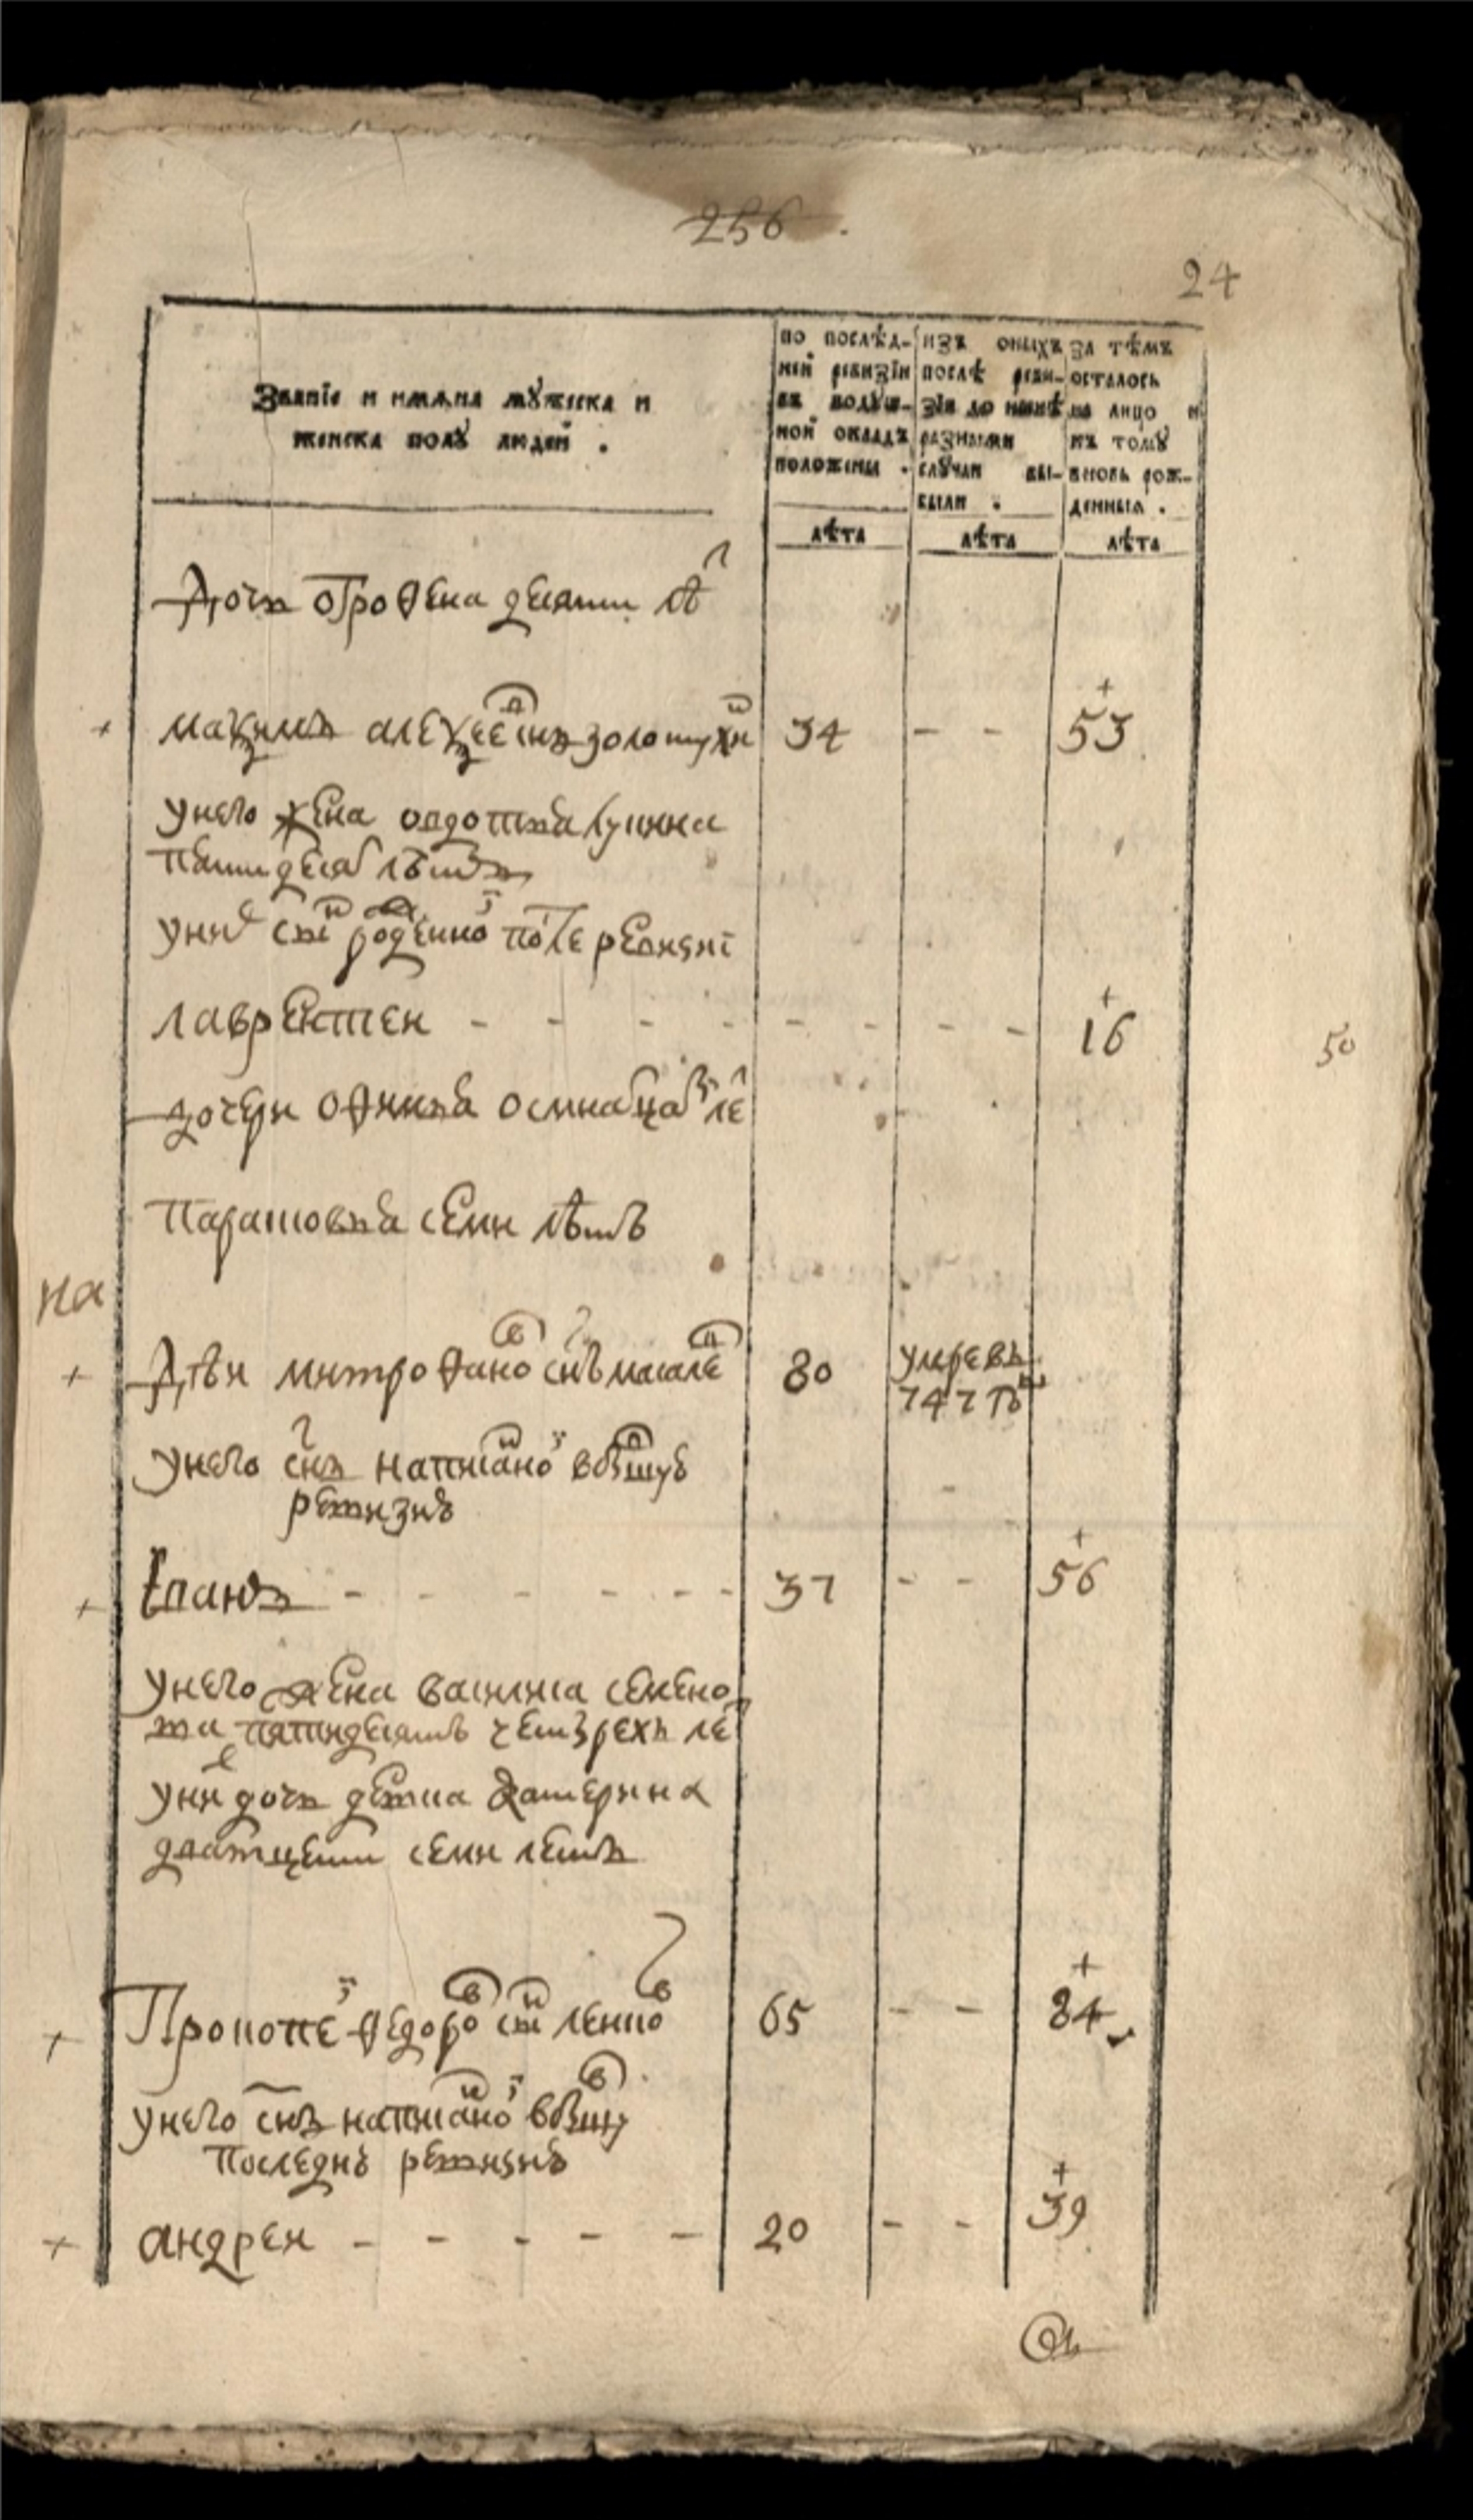 256
24
Званїе и имѧна мꙋжеска и
женска полꙋ людей .
по послѣд-
ней ревизїи
въ подꙋш-
ной окладъ
положены .
изъ оныхъ
послѣ реви-
зїи до нынѣ
разными
слꙋчаи вы-
были .
за тѣмъ
осталось
на лицо и
къ томꙋ
вновь рож-
денныя .
лѣта лѣта лѣта
Дочь Офросена десяти лѣт
Мазимъ алеѯеевъ снъ золотухин 34 - - 53
у него жена овдотья
пятидесят лѣтъ
у них сын рожденной после ревизиї
лаврентеи - - - - - - - - 16
50
дочери офимья осмнатцат лет
парасковья семи лѣтъ
на
митрофанов снъ 80 умре въ
747 г
у него снъ написаной в
ревизиѣ
- - - - - - 37 - - 56
у него жена василиса семено
ва пятидесятъ четырехъ лет
у них дочь девка катерина
дватцети семи летъ
Прокопей федоров сын леннов 65 - - 84
у него снъ написаной в
последнѣ ревизиѣ
андреи - - - - - 20 - - 39